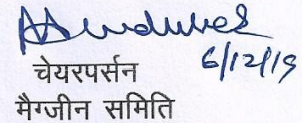 6/12/19
चेयरपर्सन
मैग्जीन समिति